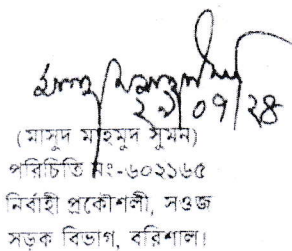 ২১/০৭/২৪
(মাসুদ মাহমুদ সুমন)
পরিচিতি নং-৬০২১৬৫
নির্বাহী প্রকৌশলী, সওজ
সড়ক বিভাগ, বরিশাল।